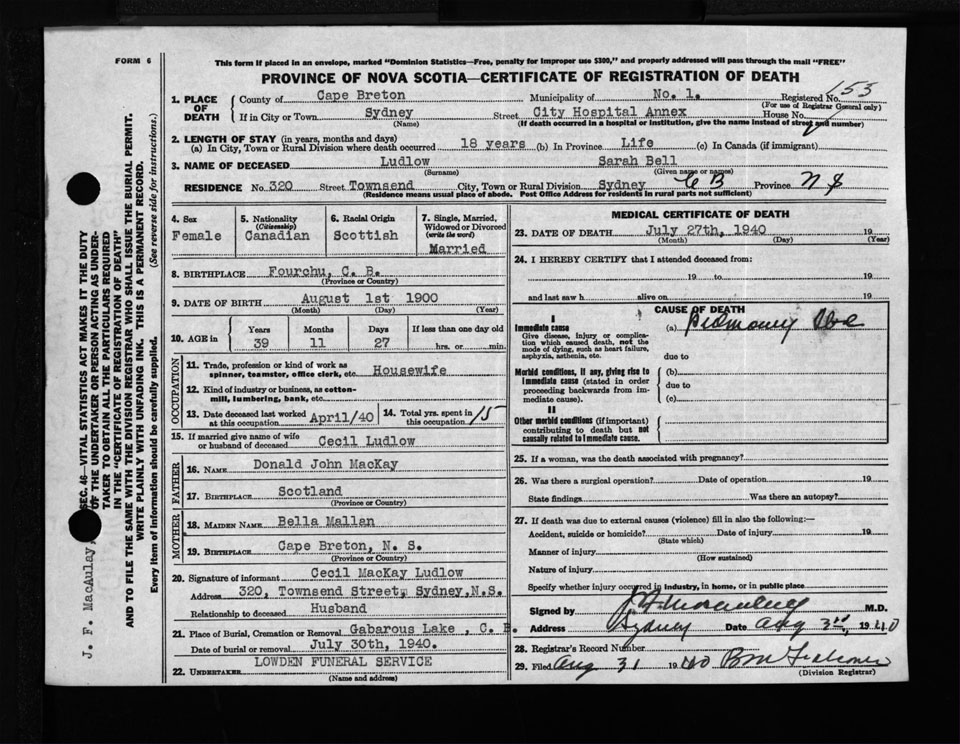 FORM 6
This form if placed in an envelope, marked "Dominion Statistics—Free, penalty for improper use $300," and properly addressed will pass through the mail "FREE"
PROVINCE OF NOVA SCOTIA—CERTIFICATE OF REGISTRATION OF DEATH
1. PLACE OF DEATH
County of Cape Breton Municipality of No. 1. Registered No. 53
(For use of Registrar General only)
If in City or Town Sydney Street City Hospital Annex House No.
(Name) (If death occurred in a hospital or institution, give the name instead of street and number)
2. LENGTH OF STAY (in years, months and days)
(a) In City, Town or Rural Division where death occurred 18 years (b) In Province Life (c) In Canada (if immigrant)
3. NAME OF DECEASED Ludlow Sarah Bell
(Surname) (Given name or names)
RESIDENCE No. 320 Street Townsend City, Town or Rural Division Sydney C B Province N S
(Residence means usual place of abode. Post Office Address for residents in rural parts not sufficient)
4. Sex
Female
5. Nationality
(Citizenship)
Canadian
6. Racial Origin
Scottish
7. Single, Married, Widowed or Divorced
(write the word)
Married
8. BIRTHPLACE Fourchu, C. B.
(Province or Country)
9. DATE OF BIRTH August 1st 1900
(Month) (Day) (Year)
10. AGE in
Years Months Days If less than one day old
39 11 27 hrs. or min.
OCCUPATION
11. Trade, profession or kind of work as
spinner, teamster, office clerk, etc. Housewife
12. Kind of industry or business, as cotton-
mill, lumbering, bank, etc.
13. Date deceased last worked
at this occupation April/40
14. Total yrs. spent in
this occupation 15
15. If married give name of wife
or husband of deceased Cecil Ludlow
FATHER
16. NAME Donald John MacKay
17. BIRTHPLACE Scotland
(Province or Country)
MOTHER
18. MAIDEN NAME Bella Mallan
19. BIRTHPLACE Cape Breton, N. S.
(Province or Country)
20. Signature of informant Cecil MacKay Ludlow
Address 320, Townsend Street, Sydney, N.S.
Relationship to deceased Husband
21. Place of Burial, Cremation or Removal Gabarous Lake, C. B.
Date of burial or removal July 30th, 1940.
22. UNDERTAKER LOWDEN FUNERAL SERVICE
(Name and address)
MEDICAL CERTIFICATE OF DEATH
23. DATE OF DEATH July 27th, 1940 19
(Month) (Day) (Year)
24. I HEREBY CERTIFY that I attended deceased from:
19 to 19
and last saw h alive on 19
CAUSE OF DEATH
I
Immediate cause (a)
Give disease, injury or complica-
tion which caused death, not the
mode of dying, such as heart failure,
asphyxia, asthenia, etc.
due to
Morbid conditions, if any, giving rise to
immediate cause (stated in order
proceeding backwards from im-
mediate cause).
(b)
due to
(c)
II
Other morbid conditions (if important)
contributing to death but not
causally related to immediate cause.
25. If a woman, was the death associated with pregnancy?
26. Was there a surgical operation? Date of operation 19
State findings Was there an autopsy?
27. If death was due to external causes (violence) fill in also the following:—
Accident, suicide or homicide? Date of injury 19
(State which)
Manner of injury
(How sustained)
Nature of injury
Specify whether injury occurred in industry, in home, or in public place
Signed by M.D.
Address Sydney Date Aug 3rd, 1940
28. Registrar's Record Number
29. Filed Aug 31 1940
(Division Registrar)
SEC. 46—VITAL STATISTICS ACT MAKES IT THE DUTY
OF THE UNDERTAKER OR PERSON ACTING AS UNDER-
TAKER TO OBTAIN ALL THE PARTICULARS REQUIRED
IN THE "CERTIFICATE OF REGISTRATION OF DEATH"
AND TO FILE THE SAME WITH THE DIVISION REGISTRAR WHO SHALL ISSUE THE BURIAL PERMIT.
WRITE PLAINLY WITH UNFADING INK. THIS IS A PERMANENT RECORD.
Every item of information should be carefully supplied. (See reverse side for instructions.)
J. F. MacAulay,